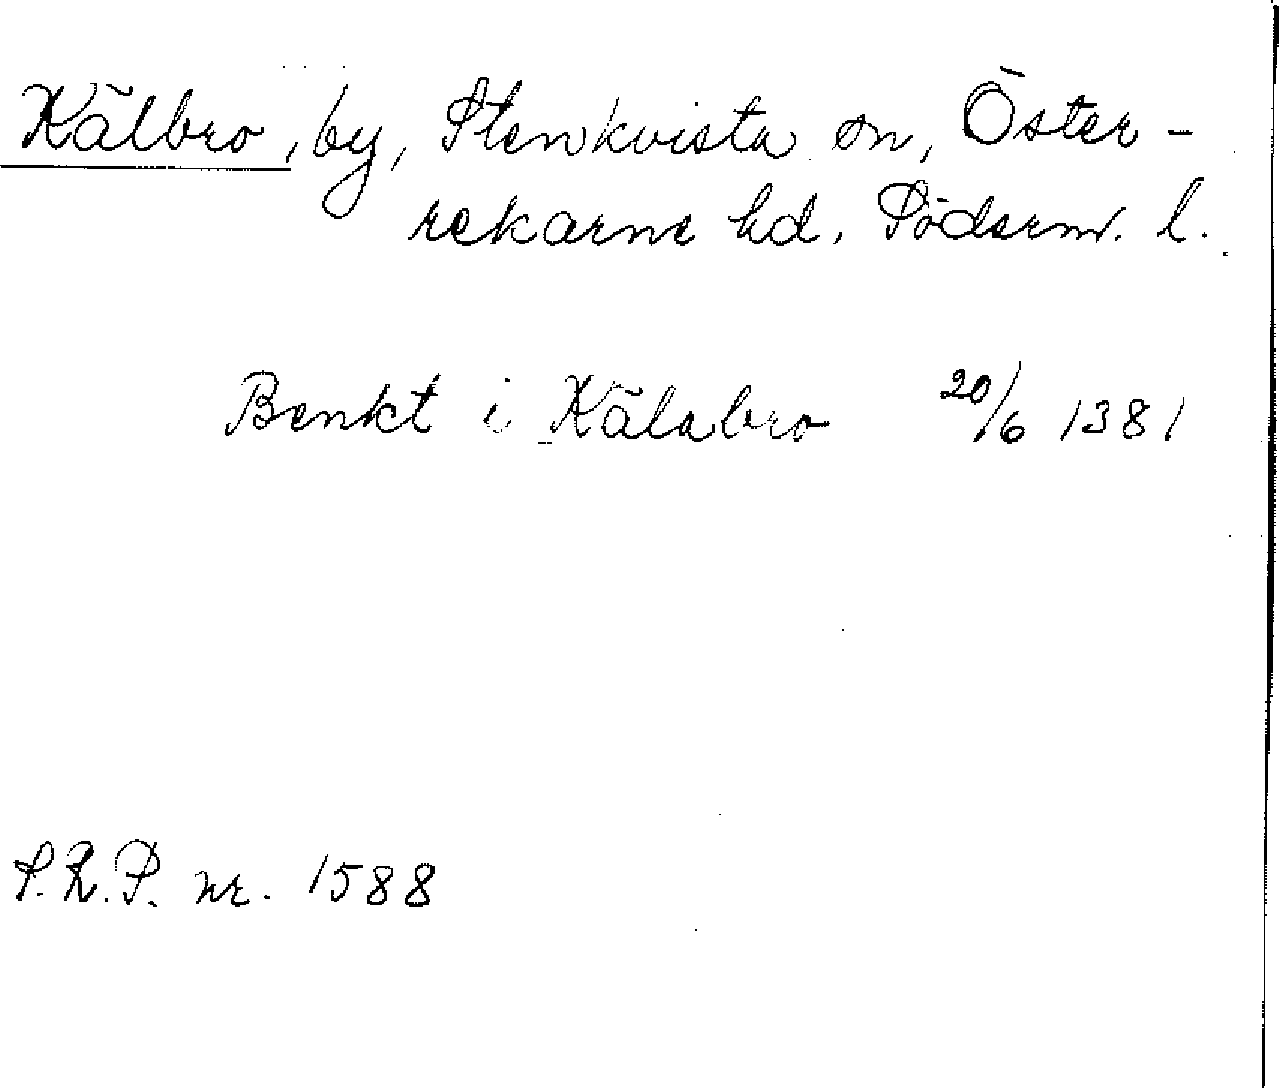 Kälbro, by, Stenkvista sn, Öster-
rekarne hd. Söderm. l.
Benkt i Kälabro 20/6 1381
S.R.P. nr. 1588